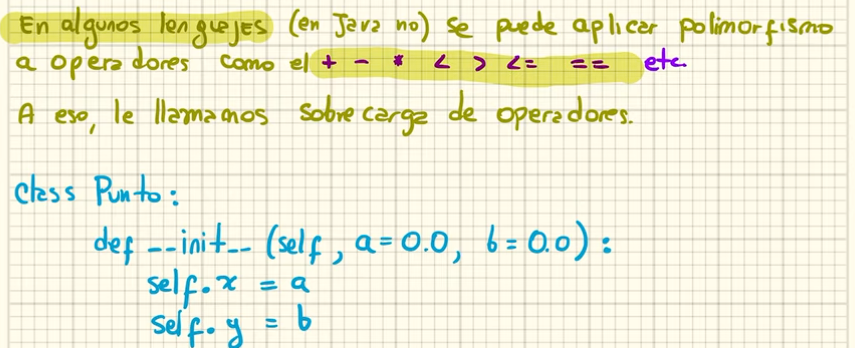 En algunos lenguajes (en Java no) se puede aplicar polimorfismo
a operadores como el + - * < > <= == etc.
A eso, le llamamos sobrecarga de operadores.
class Punto:
def __init__ (self, a=0.0, b=0.0):
self.x = a
self.y = b